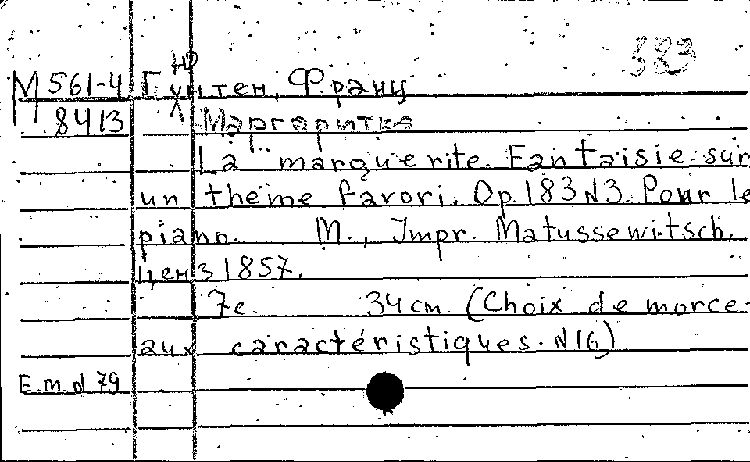 383
М 561-4 Гюнтен, Франц
8413 Маргаритка
La marguerite. Fantaisie sur
un thème favori. Op. 183 N3. Pour le
piano. M., Impr. Matussewitsch.
ценз 1857.
7 с. 34 см (Choix de morce-
aux caractéristiques. N16)
E.m.d 79